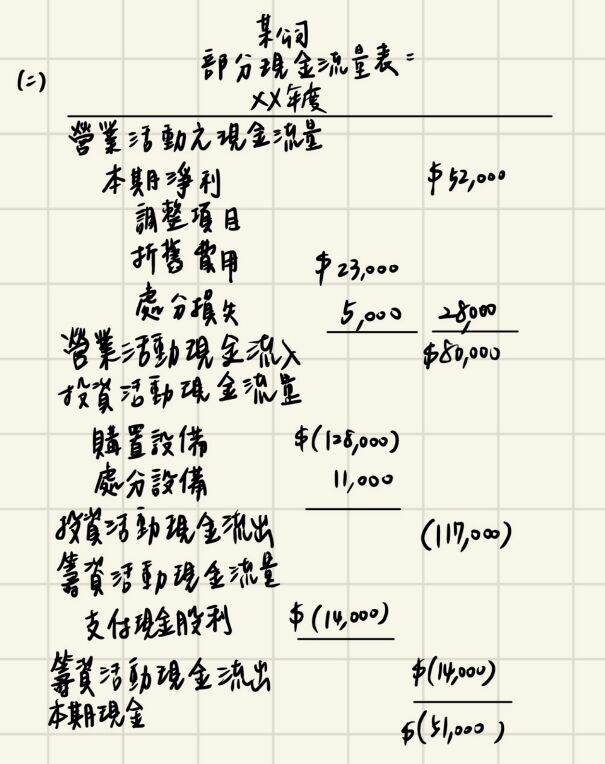 某公司
(二) 部分現金流量表=
XX年度
營業活動之現金流量
本期淨利 $52,000
調整項目
折舊費用 $23,000
處分損失 5,000 28,000
營業活動現金流入 $80,000
投資活動現金流量
購置設備 $(128,000)
處分設備 11,000
投資活動現金流出 (117,000)
籌資活動現金流量
支付現金股利 $(14,000)
籌資活動現金流出 $(14,000)
本期現金 $(51,000)